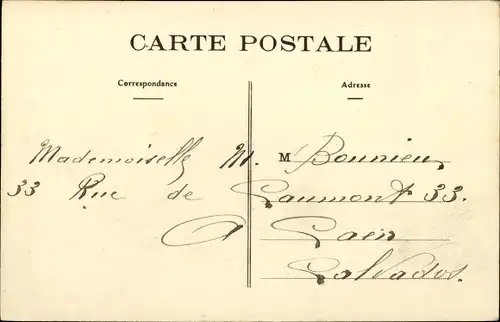 CARTE POSTALE
Correspondance
Adresse
Mademoiselle M. M Bounieu
33 Rue de Caumont 33.
A Caen
Calvados.